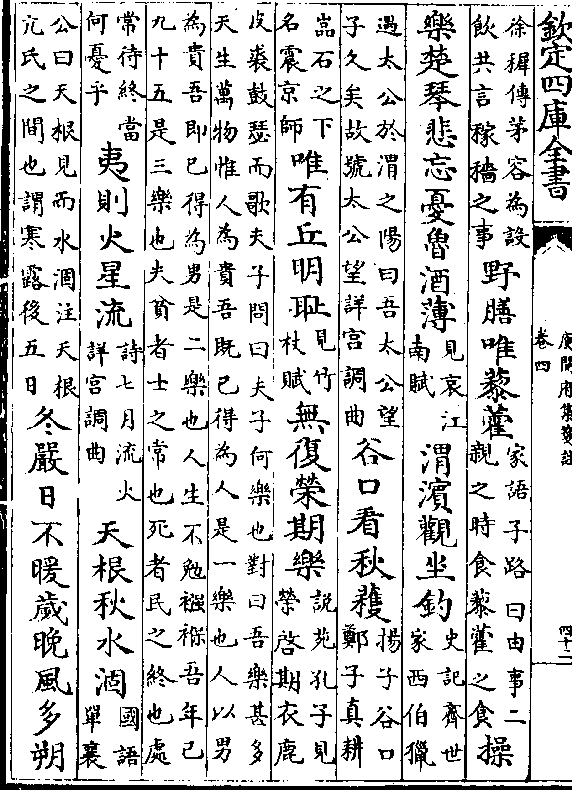 欽定四庫全書
庾開府集箋註
卷四
四十二
徐穉傳茅容為設飲共言稼穡之事野膳唯藜藿家語子路曰由事二親之時食藜藿之食操
樂楚琴悲忘憂魯酒薄見哀江南賦渭濱觀坐釣史記齊世家西伯獵
遇太公於渭之陽曰吾太公望子久矣故號太公望詳宫調曲谷口看秋穫揚子谷口鄭子真耕
嵓石之下名震京師唯有丘明恥見竹杖賦無復榮期樂說苑孔子見榮啓期衣鹿
皮裘鼓瑟而歌夫子問曰夫子何樂也對曰吾樂甚多天生萬物惟人為貴吾既已得為人是一樂也人以男
為貴吾即已得為男是二樂也人生不勉襁褓吾年已九十五是三樂也夫貧者士之常也死者民之終也處
常待終當何憂乎夷則火星流詩七月流火詳宫調曲天根秋水涸國語單襄
公曰天根見而水涸注天根亢氏之間也謂寒露後五日冬嚴日不暖歲晚風多朔